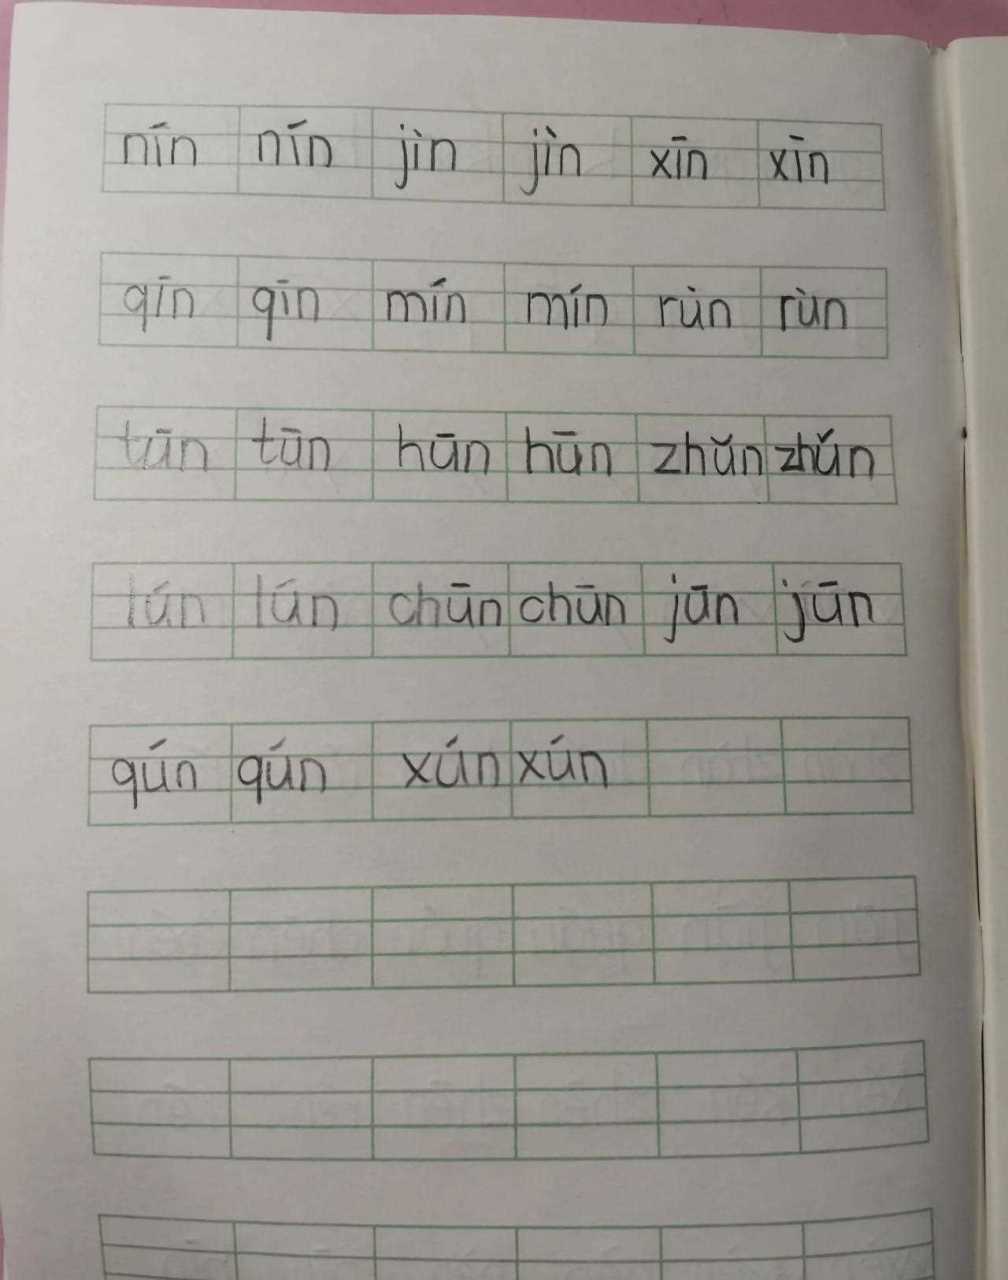 nín nín jìn jìn xīn xīn
qīn qīn mín mín rùn rùn
tūn tūn hūn hūn zhǔn zhǔn
lún lún chūn chūn jūn jūn
qún qún xún xún